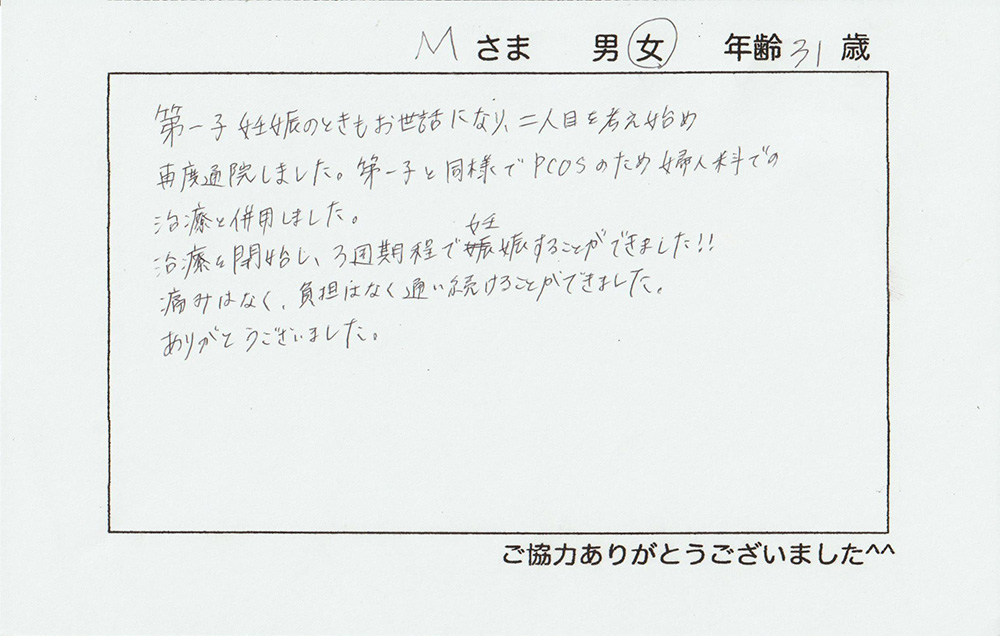 M さま 男 女 年齢 31 歳
第一子妊娠のときもお世話になり、二人目を考え始め
再度通院しました。第一子と同様でPCOSのため婦人科での
治療と併用しました。
治療を開始し、3周期程で妊娠することができました!!
痛みはなく、負担はなく通い続けることができました。
ありがとうございました。
ご協力ありがとうございました^^